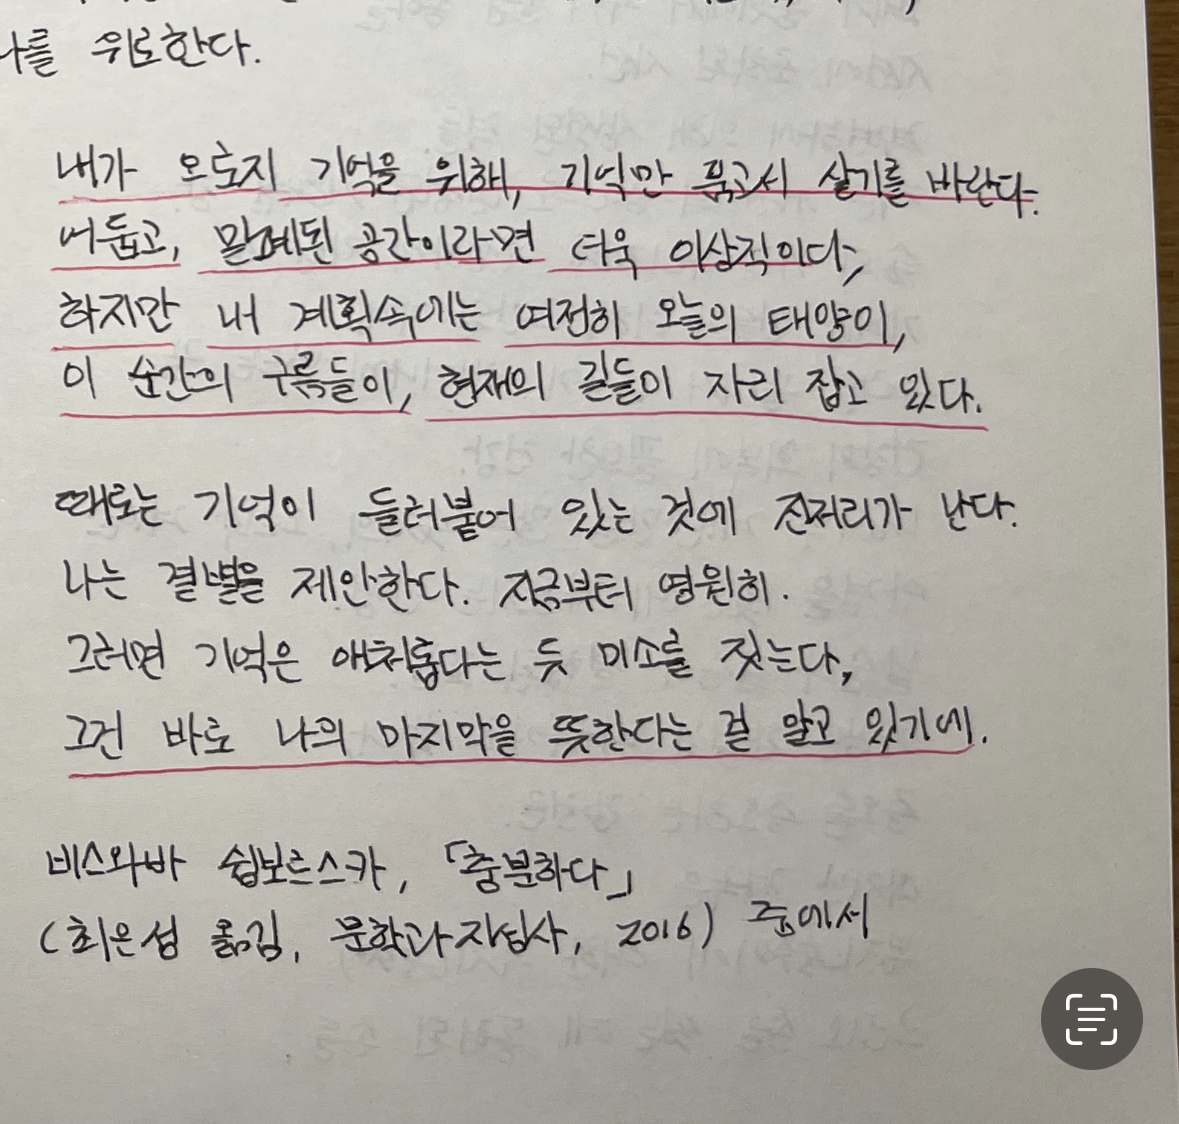 나를 위로한다.
내가 오로지 기억을 위해, 기억만 품고서 살기를 바란다.
어둡고, 밀폐된 공간이라면 더욱 이상적이다,
하지만 내 계획속에는 여전히 오늘의 태양이,
이 순간의 구름들이, 현재의 길들이 자리 잡고 있다.
때로는 기억이 들러붙어 있는 것에 진저리가 난다.
나는 결별을 제안한다. 지금부터 영원히.
그러면 기억은 애처롭다는 듯 미소를 짓는다,
그건 바로 나의 마지막을 뜻한다는 걸 알고 있기에.
비스와바 쉼보르스카, 「충분하다」
(최은성 옮김, 문학과지성사, 2016) 중에서